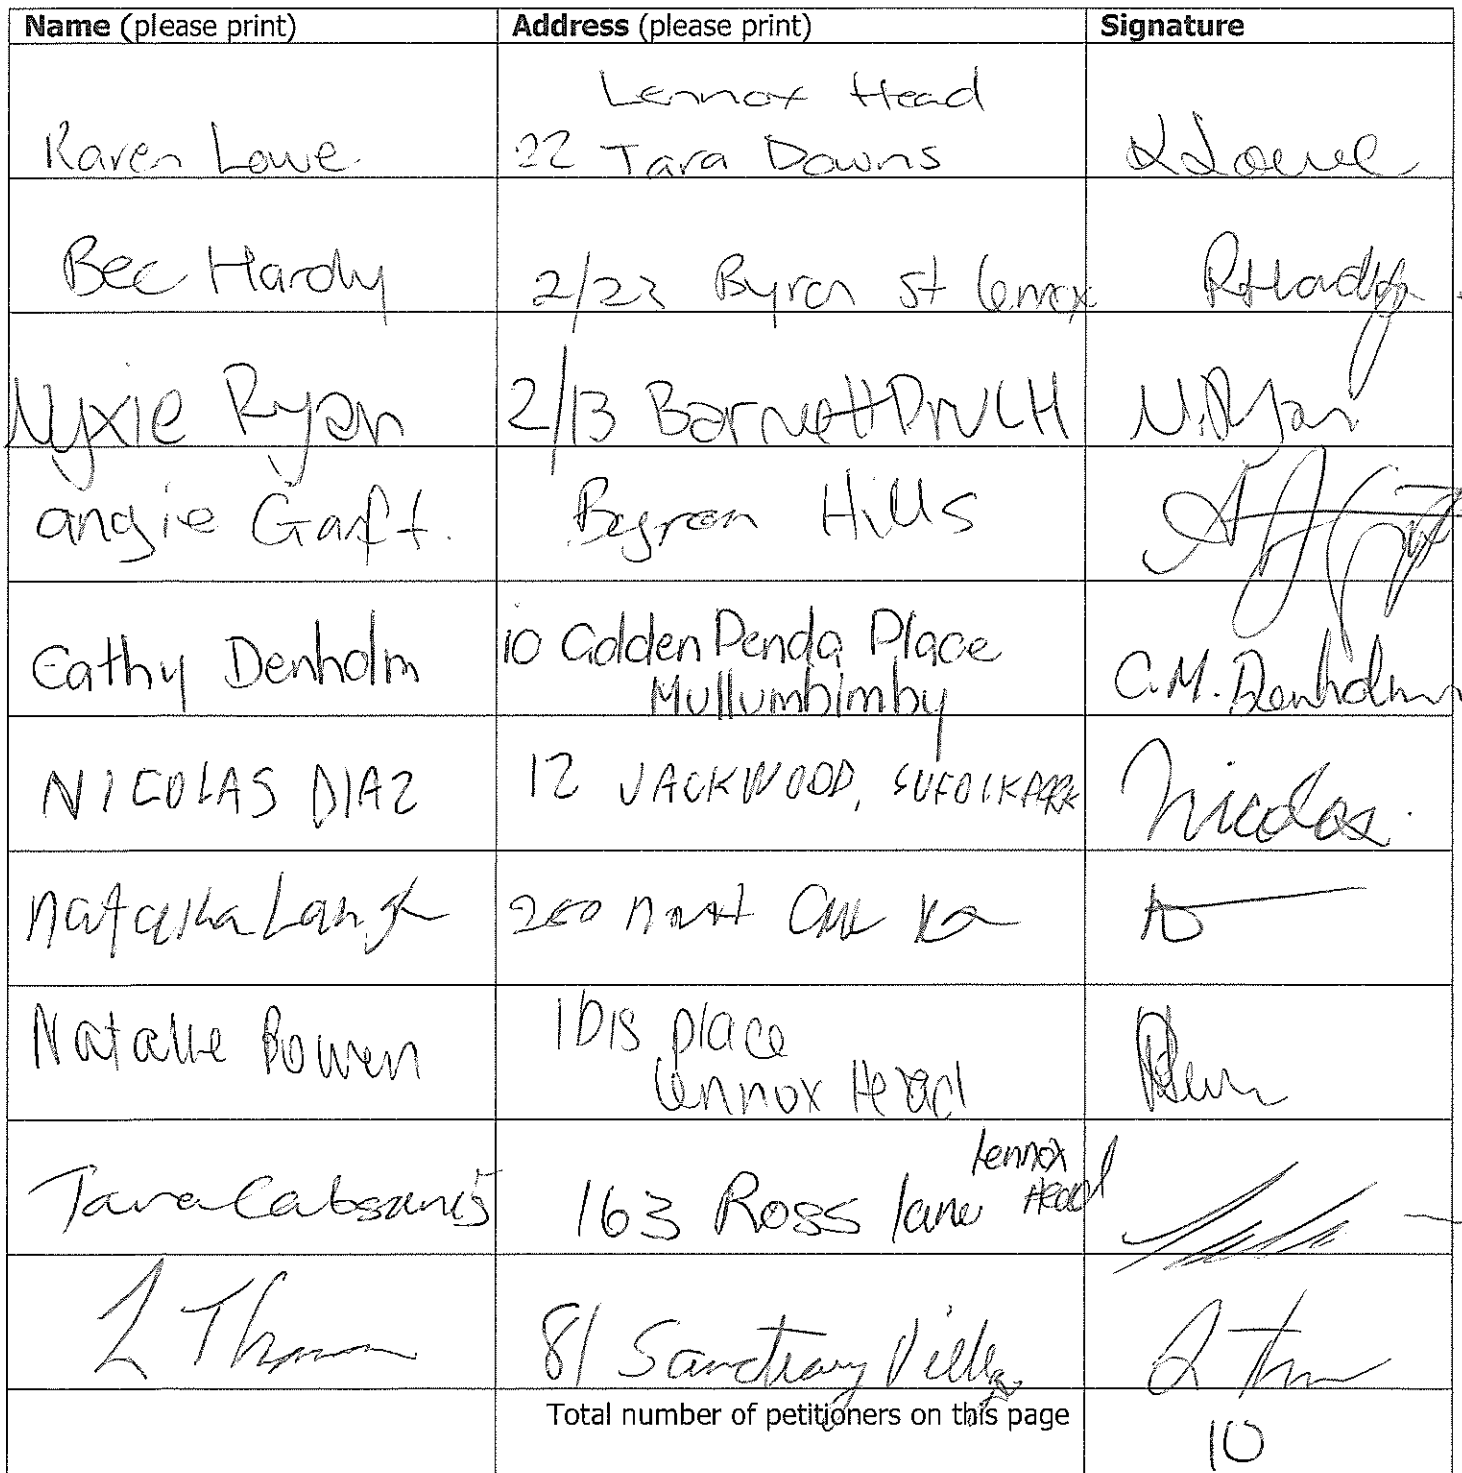 Name (please print) Address (please print) Signature
Lennox Head
Karen Lowe 22 Tara Downs KLowe
Bec Hardy 2/23 Byron st Lennox RHardy
Nyxie Ryan 2/13 Barnett Drv LH N.Ryan
angie Gaft. Byron Hills
Cathy Denholm 10 Golden Penda Place C.M. Denholm
Mullumbimby
NICOLAS DIAZ 12 JACKWOOD, SUFOLKPARK Nicolas.
260
Natalie Bowen Ibis place
Lennox Head
Lennox
Tara 163 Ross lane Head
L 81 Sanctuary Village L
Total number of petitioners on this page
10